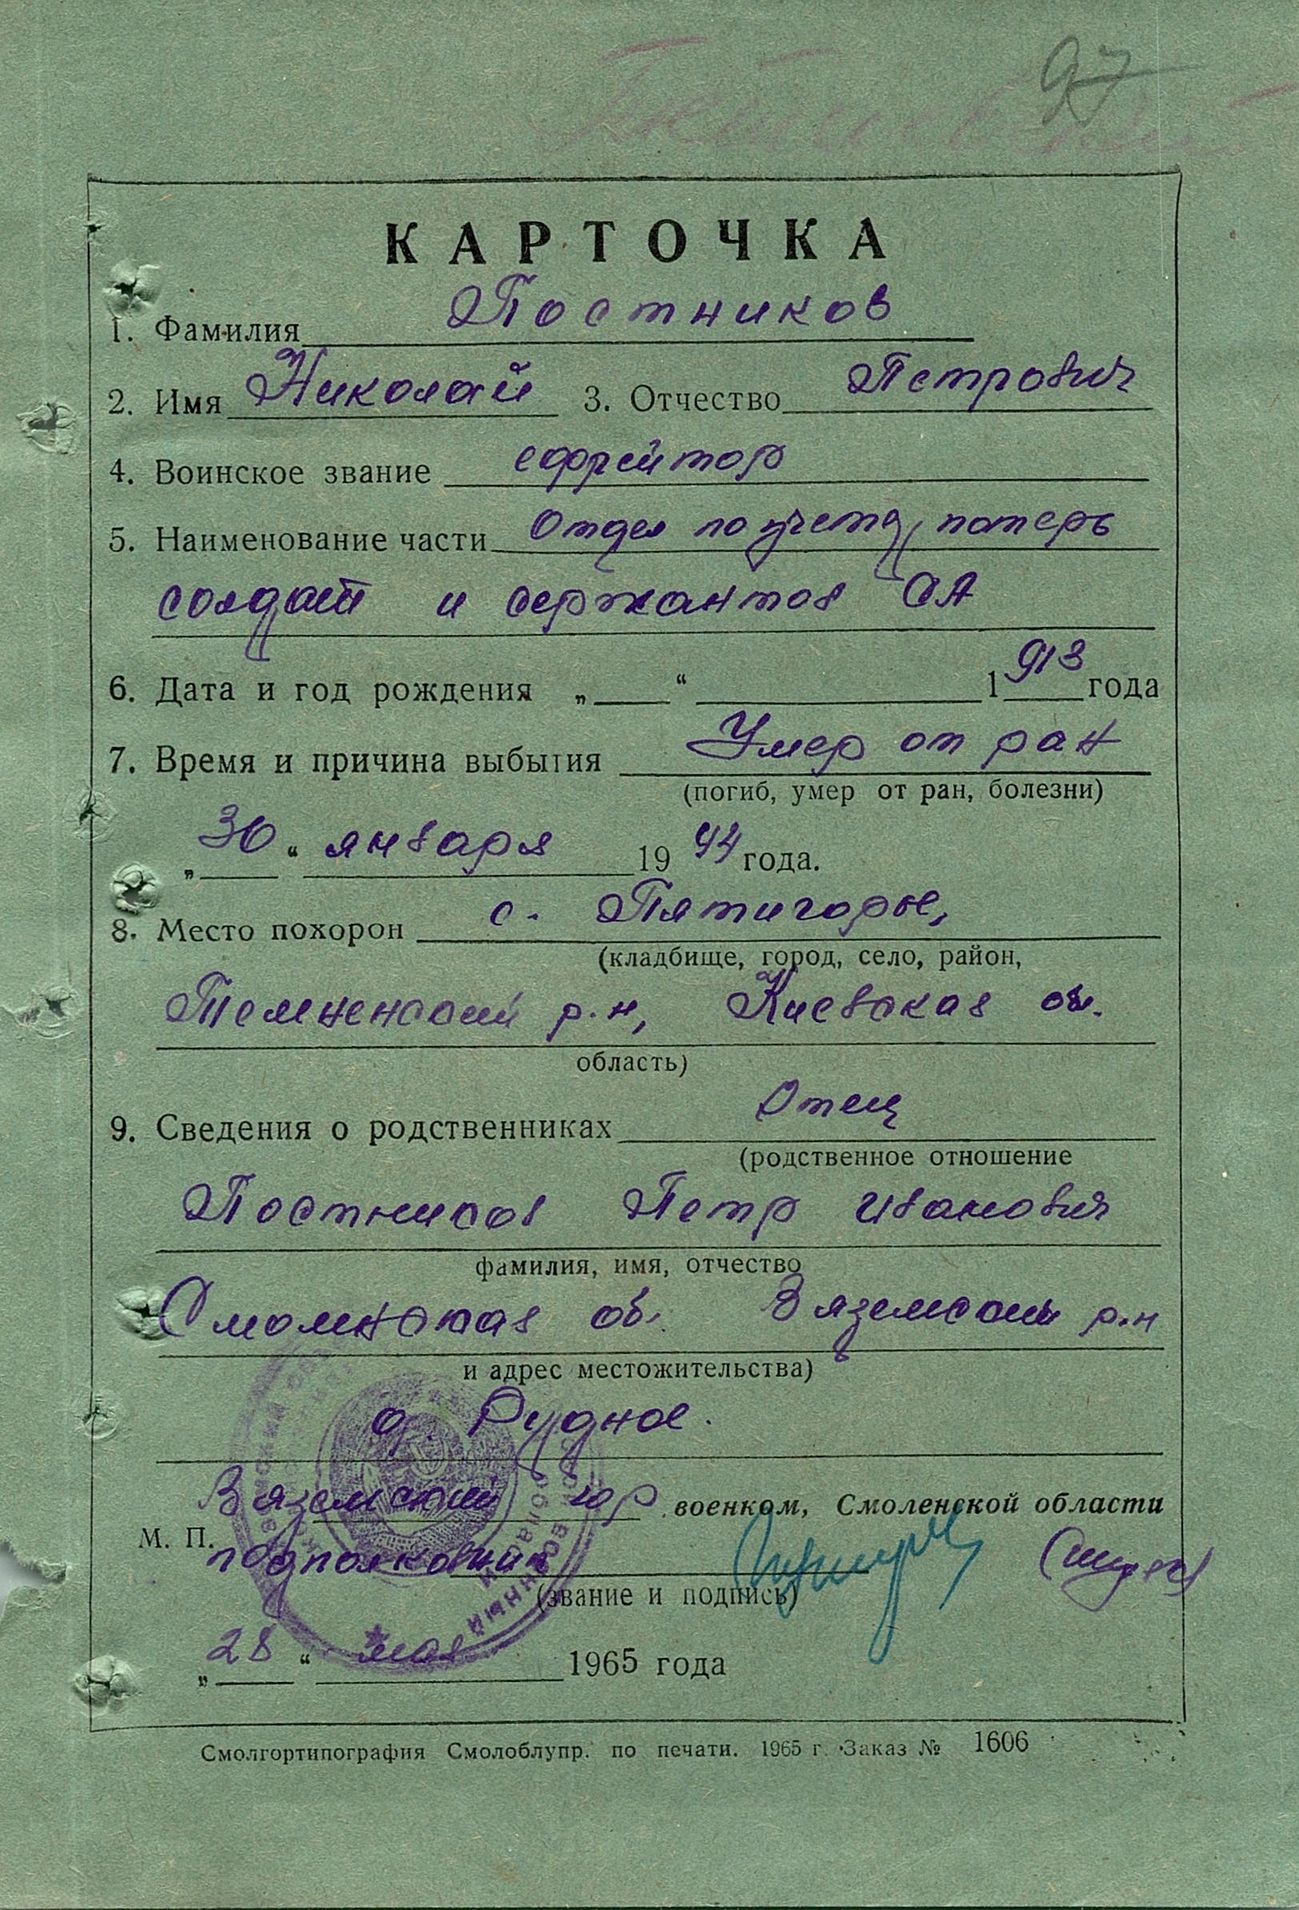 97
КАРТОЧКА
1. Фамилия Постников
2. Имя Николай 3. Отчество Петрович
4. Воинское звание ефрейтор
5. Наименование части Отдел по учету потерь
солдат и сержантов СА
6. Дата и год рождения „ “ 1913 года
7. Время и причина выбытия Умер от ран
(погиб, умер от ран, болезни)
„30“ января 1944 года.
8. Место похорон с. Пятигоры,
(кладбище, город, село, район,
р-н, Киевская об.
область)
9. Сведения о родственниках Отец
(родственное отношение
Постников Петр Иванович
фамилия, имя, отчество
Смоленская об. Вяземский р-н
и адрес местожительства)
д. Рудное.
Вяземский гор военком, Смоленской области
М. П. подполковник
(звание и подпись)
„28“ мая 1965 года
Смолгортипография Смолоблупр. по печати. 1965 г. Заказ № 1606